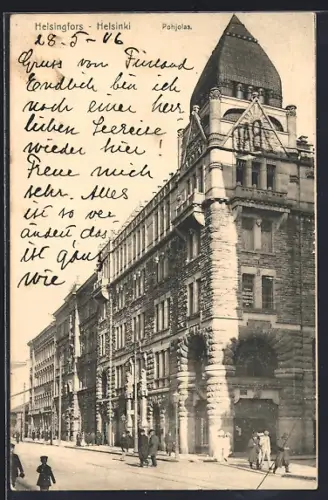 Helsingfors - Helsinki
Pohjolas.
28-5-06
Gruss von Finland
Endlich bin ich
nach einer herr
lichen Seereise
wieder hier!
Freue mich
sehr. Alles
ist so ver
ändert, das
ist ganz
wie